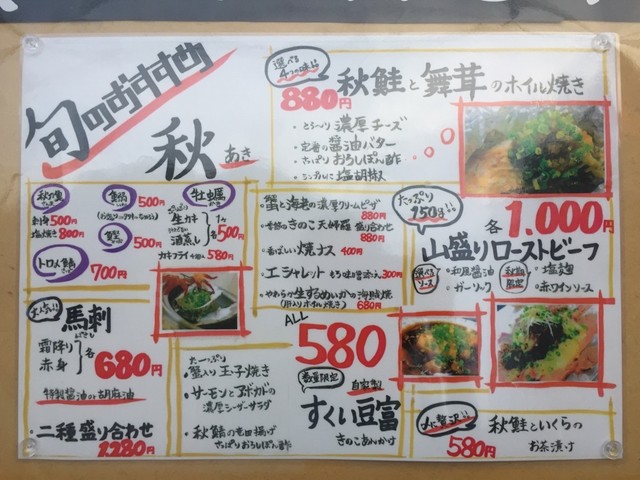 旬のおすすめ
秋
あき
選べる
4つの味!!
880円
秋鮭と舞茸のホイル焼き
・とろ〜り濃厚チーズ
・定番の醤油バター
・さっぱりおろしぽん酢
・シンプルに塩胡椒
500円
刺身500円
塩焼き800円
500円
トロ〆鯖
700円
牡蠣
・生カキ
・酒蒸し
1ヶ
各500円
カキフライ 580円
・蟹と海老の濃厚クリームピザ
880円
きのこ天婦羅盛り合わせ
880円
・香ばしい焼ナス 400円
・エシャレット もろ味噌添え 300円
・やわらか生するめいかの海賊焼
(肝入りホイル焼き) 680円
たっぷり
150g!!
各1,000円
山盛りローストビーフ
選べる
ソース
・和風醤油
・ガーリック
・塩麹
・赤ワインソース
馬刺
霜降り
赤身
各680円
特製醤油の胡麻油
・二種盛り合わせ
1280円
ALL
580
円
たーっぷり
・蟹入り玉子焼き
・サーモンとアボカドの
濃厚シーザーサラダ
・秋鯖の竜田揚げ
さっぱりおろしぽん酢
数量限定
自家製
すくい豆富
きのこあんかけ
〆に贅沢!!
580円
秋鮭といくらの
お茶漬け